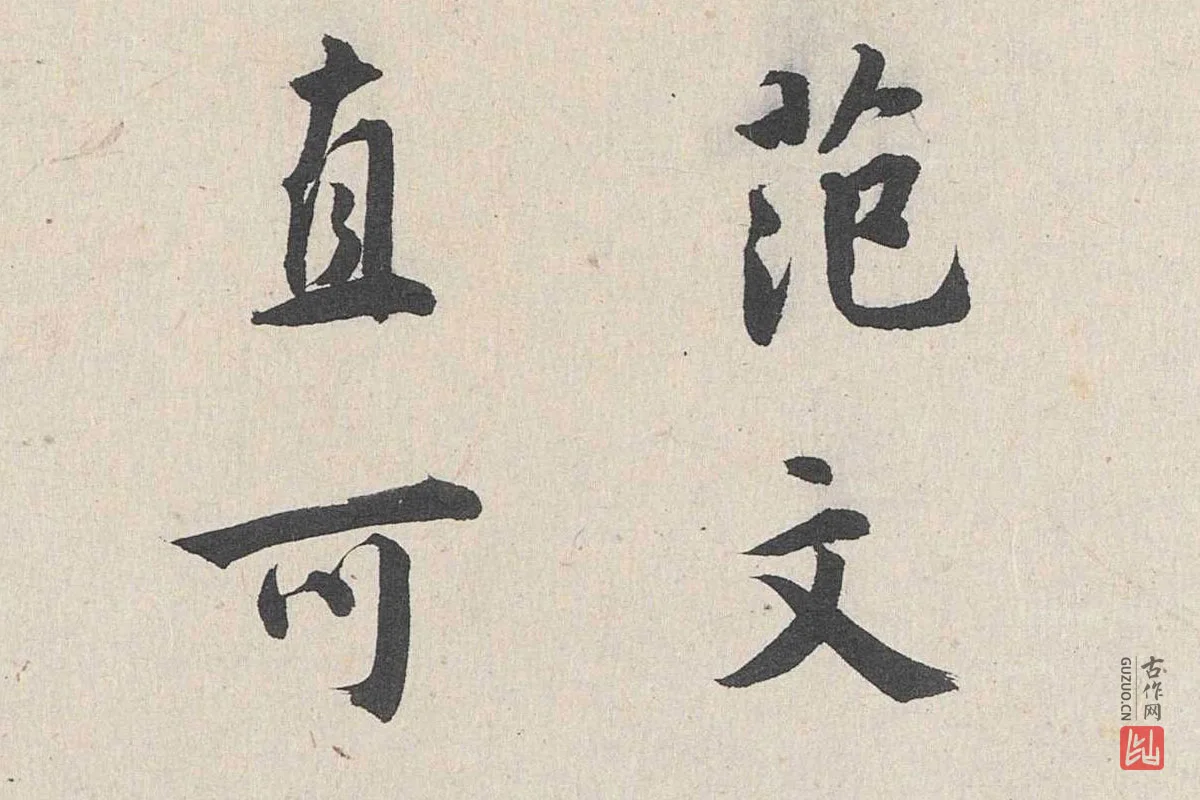 范文
直可
古作网
GUZUO.CN